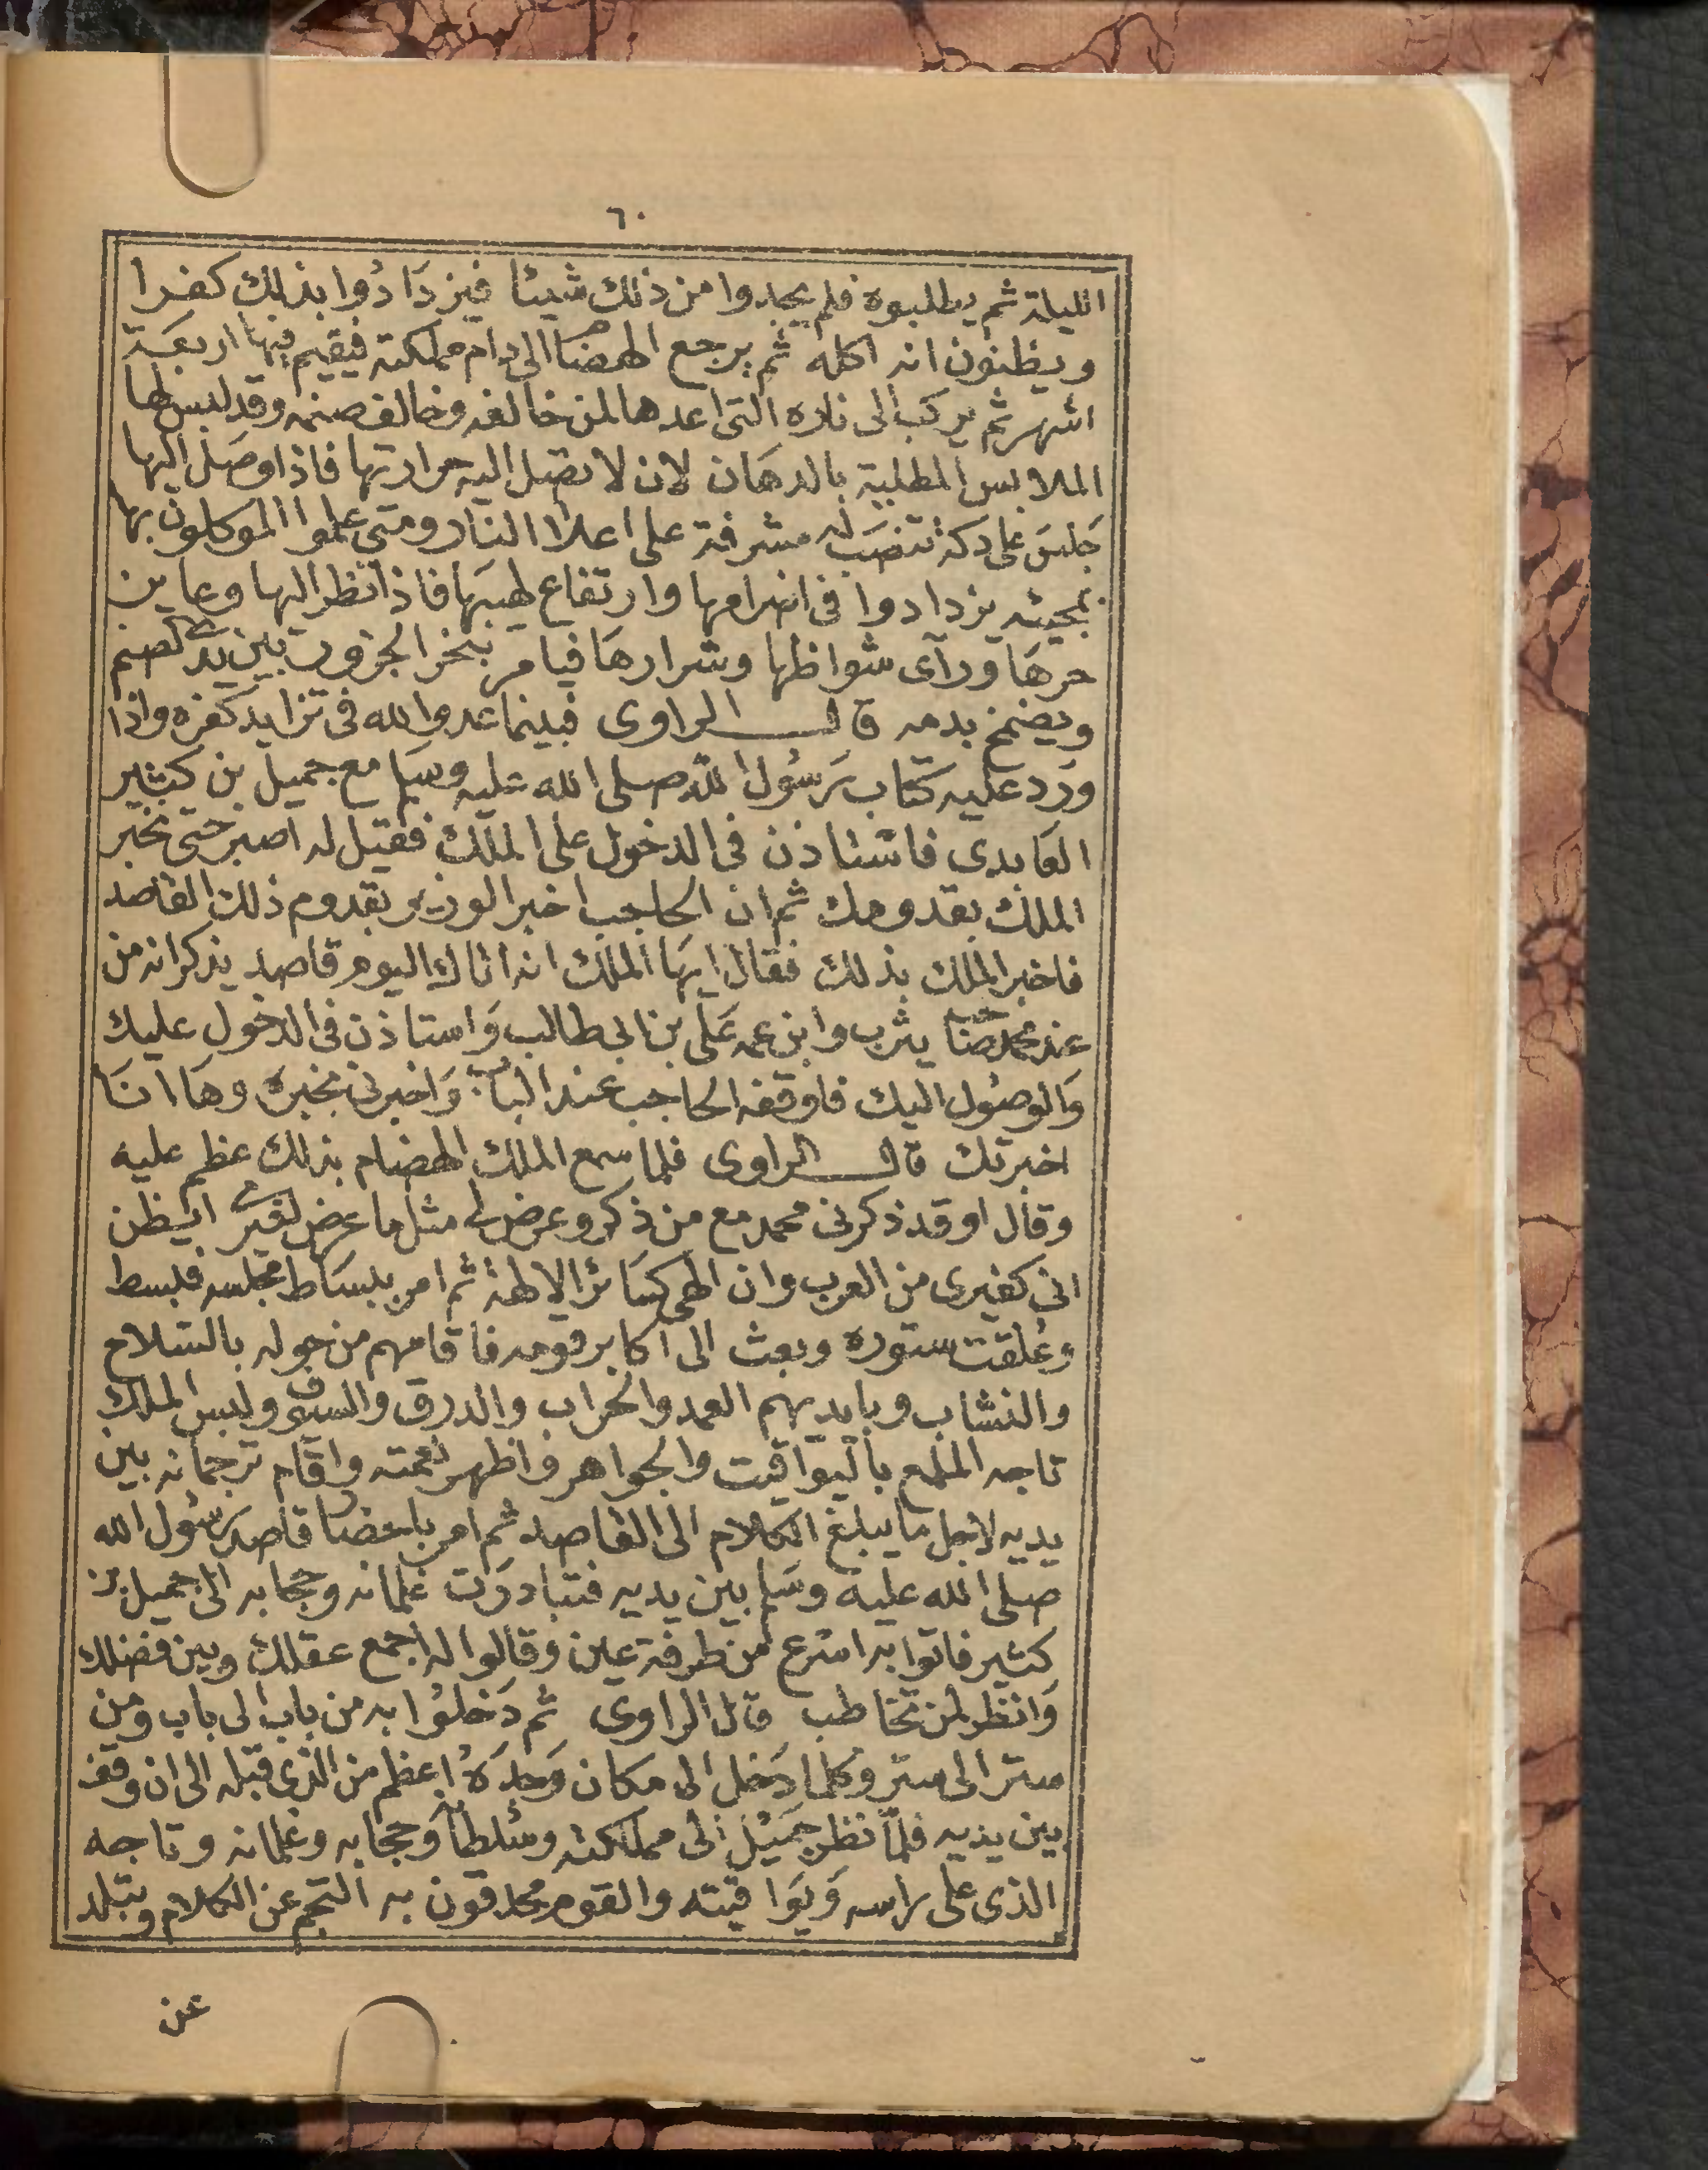 ٦٠
الليلة ثم يطلبوه فلم يجدوا من ذلك شيئا فيزدَادُوا بذلك كفرا
ويظنون انه اكله ثم يرجع الهضام الى دام مملكته فيقيم فيها اربعَة
اشهر ثم يركب الى ناره التى اعدها لمن خالفه وخالف صنمه وقد لبس لها
الملابس المطلية بالدهَان لان لا تصل اليه حرارتها فاذا وصَل اليها
جَلسَ على دكة تنصَب له مشرفة على اعلا النار ومتى علموا الموكلون بها
بمجيئه يزدادوا فى اضرامها وارتفاع لهيبَها فاذا نظر اليها وعاين
حرهَا ورآى شواظها وشرارهَا فيامر بنحر الجزور بين يدى الصنم
ويضمخ بدمه قال الراوى فبينما عدو الله فى تزايد كفره واذا
ورد عليه كتاب رَسُول الله صلى الله عليه وسَلم مع جميل بن كثير
العَابدى فاستاذن فى الدخول على الملك فقيل له اصبر حتى نخبر
الملك بقدومك ثم ان الحاجب اخبر الوزير بقدوم ذلك القاصد
فاخبر الملك بذلك فقال ايهَا الملك انه اتاك اليوم قاصد يذكر انه من
عند محمد صَاحب يثرب وابن عمه عَلى بن ابى طالب وَاستاذن فى الدخول عليك
وَالوصُول اليك فاوقفه الحاجب عند البَاب وَاخبرنى بخبره وهَا انَا
اخبرتك قال الراوى فلما سمع الملك الهضام بذلك عظم عليه
وقال او قد ذكرنى محمد مع من ذكر وعرض لى مثل ما عرض لغيرى ايظن
انى كغيرى من العرب وان الهى كسَائر الالهة ثم امر ببسَاط مجلسه فبسط
وعُلقت ستوره وبعث الى اكابر قومه فاقامهم من حوله بالسّلاح
والنشاب وبايديهم العمد والحراب والدرق والسيوف ولبس الملك
تاجه الملمع باليَواقيت والجواهر واظهر نعمته واقام ترجمانه بين
يديه لاجل ما يبلغ الكلام الى القاصد ثم امر باحضار قاصد رَسُول الله
صلى الله عليه وسَلم بين يديه فتبادرَت غلمانه وحجابه الى جميل بن
كثير فاتوا به اسرع من طرفة عين وقالوا له اجمع عقلك وبين فضلك
وَانظر لمن تخاطب قال الراوى ثم دَخلوُا به من باب الى باب ومن
ستر الى ستر وكلما دَخل الى مكان وَجدَهُ اعظم من الذى قبله الى ان وقف
بين يديه فلمّا نظر جَميْل الى مملكته وسُلطانه وَحجابه وغلمانه وتاجه
الذى على راسه وَيَوَاقيته والقوم محدقون به التجم عن الكلام وتبلد
عن